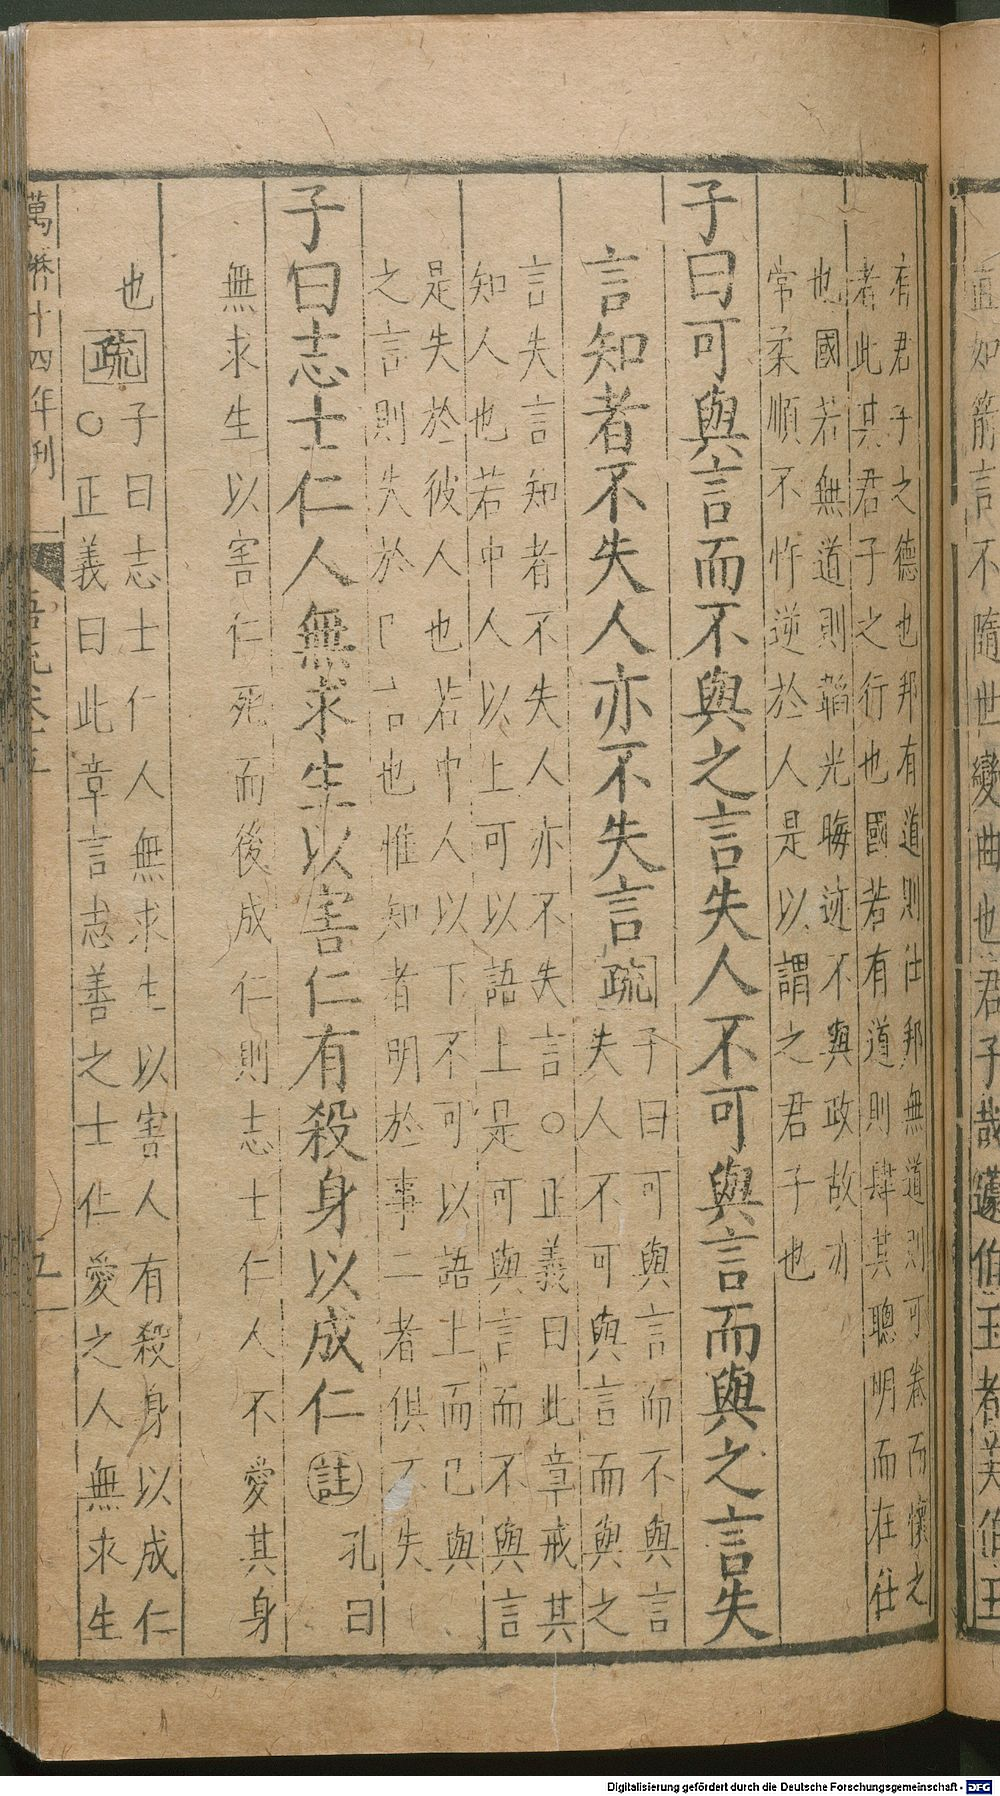 直如箭言不隨世變曲也君子哉蘧伯玉者美伯玉
有君子之德也邦有道則仕邦無道則可卷而懷之
者此其君子之行也國若有道則肆其聰明而在仕
也國若無道則韜光晦迹不與政故亦
常柔順不忤逆於人是以謂之君子也
子曰可與言而不與之言失人不可與言而與之言失
言知者不失人亦不失言疏
子曰可與言而不與言
失人不可與言而與之
言失言知者不失人亦不失言○正義曰此章戒其
知人也若中人以上可以語上是可與言而不與言
是失於彼人也若中人以下不可以語上而已與
之言則失於己言也惟知者明於事二者俱不失
子曰志士仁人無求生以害仁有殺身以成仁註孔曰
無求生以害仁死而後成仁則志士仁人不愛其身
也疏子曰志士仁人無求生以害人有殺身以成仁
○正義曰此章言志善之士仁愛之人無求生
萬曆十四年刊
五
Digitalisierung gefördert durch die Deutsche Forschungsgemeinschaft - DFG